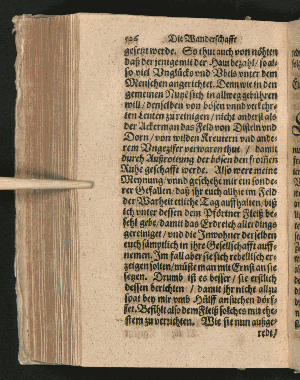 596 Die Wanderschafft
gesetzt werde. So thut auch von nöhten
daß der jenige mit der Haut bezahl / so al-
so viel Vnglücks vnd Vbels vnter dem
Menschen angerichtet. Denn wie in den
gemeinen Nutz sich in allweg gebühren
will / denselben von bösen vnnd verkehr-
ten Leuten zu reinigen / nicht anderst als
der Ackerman das Feld von Disteln vnd
Dorn / von wilden Kreutern vnd ande-
rem Vngeziffer verwaren thut / damit
durch Außreitung der bösen den frommen
Ruhe geschafft werde. Also were meine
Meynung / vnnd geschehe mir ein sonde-
rer Gefallen / daß jhr euch allhie im Feld
der Warheit etliche Tag auffhalten / biß
ich vnter dessen dem Pförtner Fleiß be-
fehl gebe / damit das Erdreich aller dings
gereiniget / vnd die Inwohner desselben
euch sämptlich in jhre Gesellschafft auff-
nemen. Im fall aber sie sich rebellisch er-
zeigen solten / müste man mit Ernst an sie
setzen. Drumb ist es besser / sie erstlich
dessen berichten / damit jhr nicht allzu
spat bey mir vmb Hülff ansuchen dörf-
fet. Befihlt also dem Fleiß solches mit ehe-
stem zu verrichten. Wie sie nun außge-
redt /